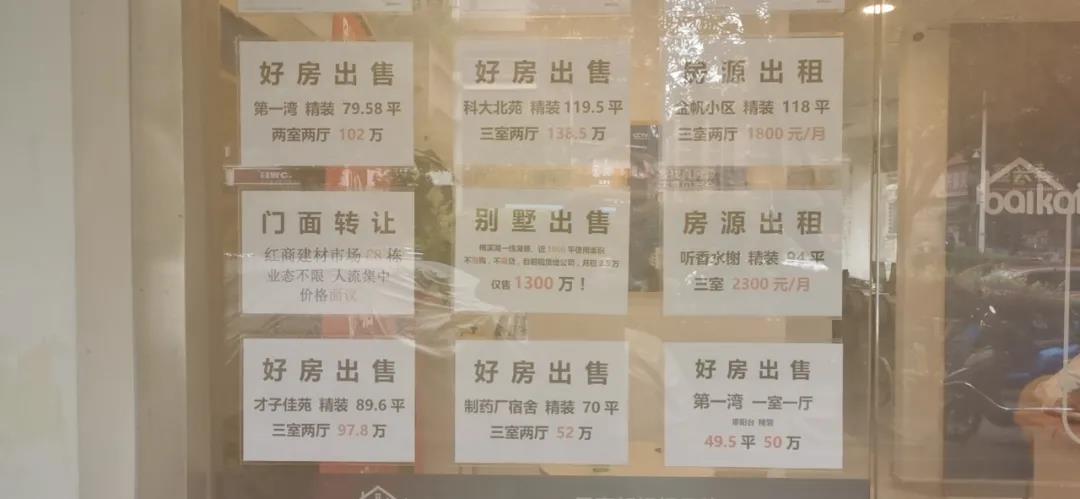 好房出售
第一湾 精装 79.58 平
两室两厅 102 万
好房出售
科大北苑 精装 119.5 平
三室两厅 138.5 万
房源出租
金帆小区 精装 118 平
三室两厅 1800 元/月
门面转让
红商建材市场 栋
业态不限 人流集中
价格面议
别墅出售
仅售 1300 万！
房源出租
听香水榭 精装 94 平
三室 2300 元/月
好房出售
才子佳苑 精装 89.6 平
三室两厅 97.8 万
好房出售
制药厂宿舍 精装 70 平
三室两厅 52 万
好房出售
第一湾 一室一厅
带阳台 精装
49.5 平 50 万